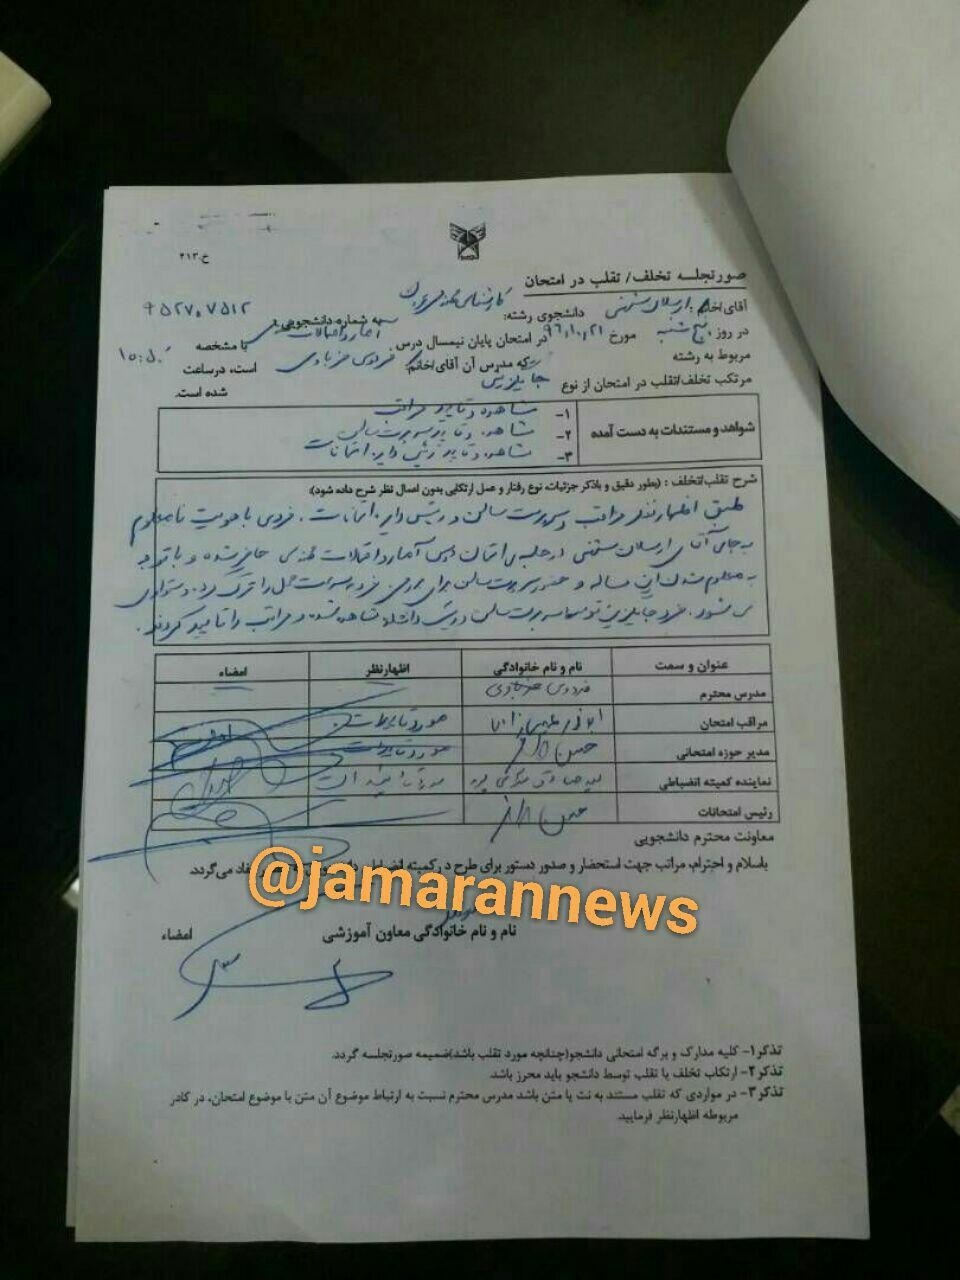 خ.۴۱۳
صورتجلسه تخلف/ تقلب در امتحان
آقای/خانم: ارسلان دانشجوی رشته: کارشناسی مهندسی به شماره دانشجویی: ۹۵۲۷۰۷۵۱۲
در روز پنج شنبه مورخ ۹۶,۱۰,۲۱ در امتحان پایان نیمسال درس آمار و احتمالات مهندسی با مشخصه
مربوط به رشته که مدرس آن آقای/خانم: فردوس است، درساعت ۱۰:۵۰
مرتکب تخلف/تقلب در امتحان از نوع جایگزینی شده است.
شواهد و مستندات به دست آمده
۱- مشاهده و تایید مراقب
۲- مشاهده و تایید سرپرست سالن
۳- مشاهده و تایید رئیس دایره امتحانات
شرح تقلب/تخلف : (بطور دقیق و باذکر جزئیات، نوع رفتار و عمل ارتکابی بدون اعمال نظر شرح داده شود)؛
طبق اظهارنظر مراقب و سرپرست سالن و رئیس دایره امتحانات، فردی با هویت نامعلوم
به جای آقای ارسلان در جلسه امتحان درس آمار و احتمالات مهندسی حاضر شده و با توجه
به معلوم شدن این مساله و حضور سرپرست سالن برای بررسی، فرد به سرعت محل را ترک کرد و متواری
می شود. فرد جایگزین توسط سرپرست سالن و رئیس دانشکده مشاهده شده و مراتب را تایید کردند.
عنوان و سمت نام و نام خانوادگی اظهارنظر امضاء
مدرس محترم فردوس
مراقب امتحان ابوذر مورد تایید است.
مدیر حوزه امتحانی حسن مورد تایید است
نماینده کمیته انضباطی مورد تایید است
رئیس امتحانات حسن
معاونت محترم دانشجویی
باسلام و احترام، مراتب جهت استحضار و صدور دستور برای طرح در کمیته انضباطی می‌گردد.
@jamarannews
نام و نام خانوادگی معاون آموزشی امضاء
تذکر۱- کلیه مدارک و برگه امتحانی دانشجو(چنانچه مورد تقلب باشد)ضمیمه صورتجلسه گردد.
تذکر۲- ارتکاب تخلف یا تقلب توسط دانشجو باید محرز باشد.
تذکر۳- در مواردی که تقلب مستند به نت یا متن باشد مدرس محترم نسبت به ارتباط موضوع آن متن با موضوع امتحان، در کادر
مربوطه اظهارنظر فرمایید.